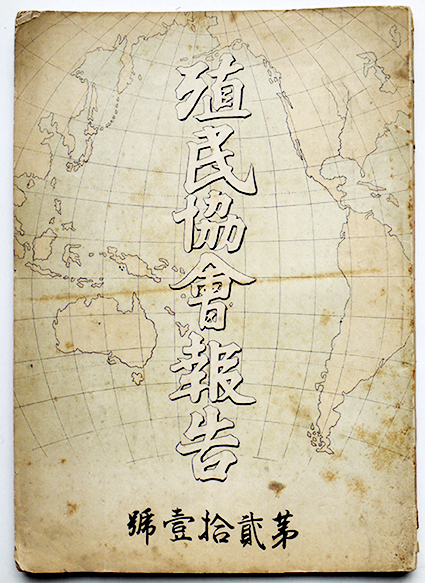 殖民協會報告
第貳拾壹號